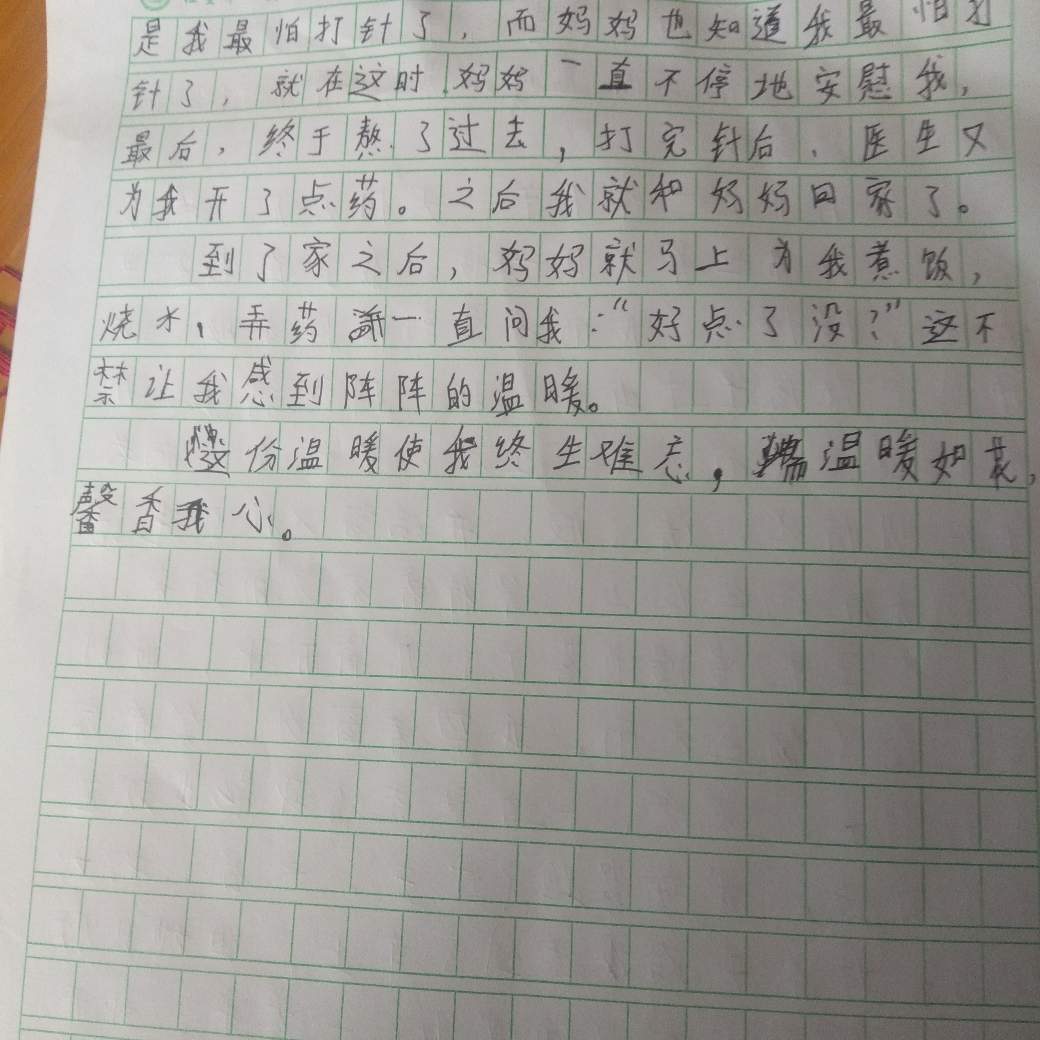 是我最怕打针了，而妈妈也知道我最怕打
针了，就在这时妈妈一直不停地安慰我，
最后，终于熬了过去，打完针后、医生又
为我开了点药。之后我就和妈妈回家了。
到了家之后，妈妈就马上为我煮饭，
烧水、弄药一直问我：“好点了没？”这不
禁让我感到阵阵的温暖。
这份温暖使我终生难忘，温暖如花，
馨香我心。